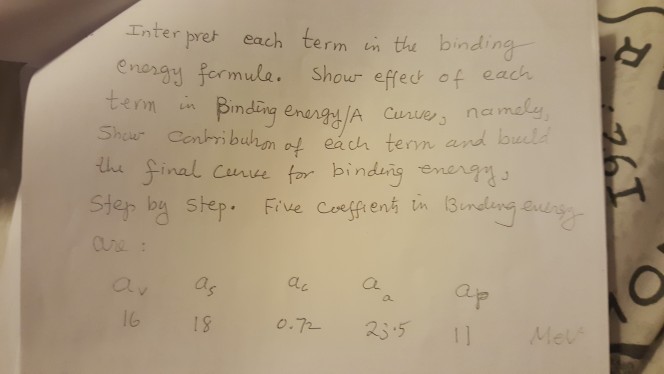 Interpret each term in the binding
energy formula. Show effect of each
term in Binding energy/A curves, namely,
Show Contribution of each term and build
the final curve for binding energy,
Step by Step. Five Coeffient in Binding energy
are :
av as ac aa ap
16 18 0.72 23.5 11 MeV